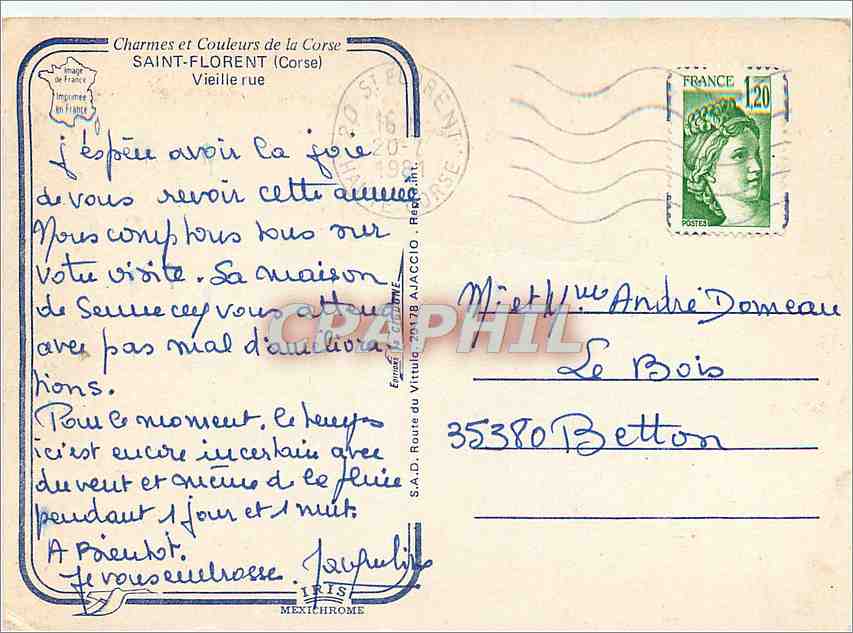 Charmes et Couleurs de la Corse
SAINT-FLORENT (Corse)
Vieille rue
Image
de France
Imprimée
en France
J'espère avoir la joie
de vous revoir cette année
Nous comptons tous sur
votre visite. La maison
de Sennecey vous attend
avec pas mal d'améliora-
tions.
Pour le moment, le temps
ici est encore incertain avec
du vent et même de la pluie
pendant 1 jour et 1 nuit.
A Bientot.
Je vous embrasse. Jacqueline
IRIS
MEXICHROME
Editions de
S.A.D. Route du Vittulo, 20178 AJACCIO. Rep. int.
20 ST FLORENT
16
20-7
1981
HAUTE CORSE
FRANCE
1,20
POSTES
CPAPHIL
Mr et Mme André Domeau
Le Bois
35380 Betton